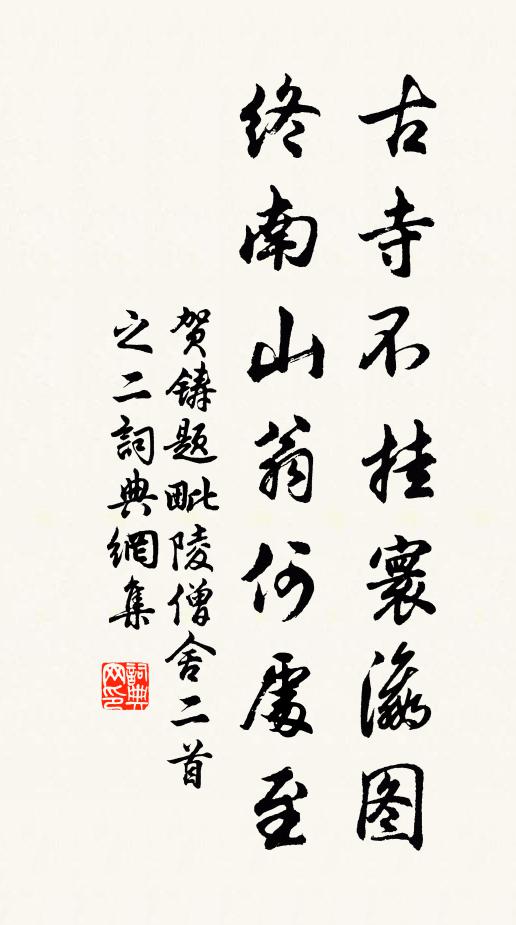 古寺不挂寰瀛图
终南山翁何處至
贺鑄题毗陵僧舍二首
之二詞典網集
詞典
网印